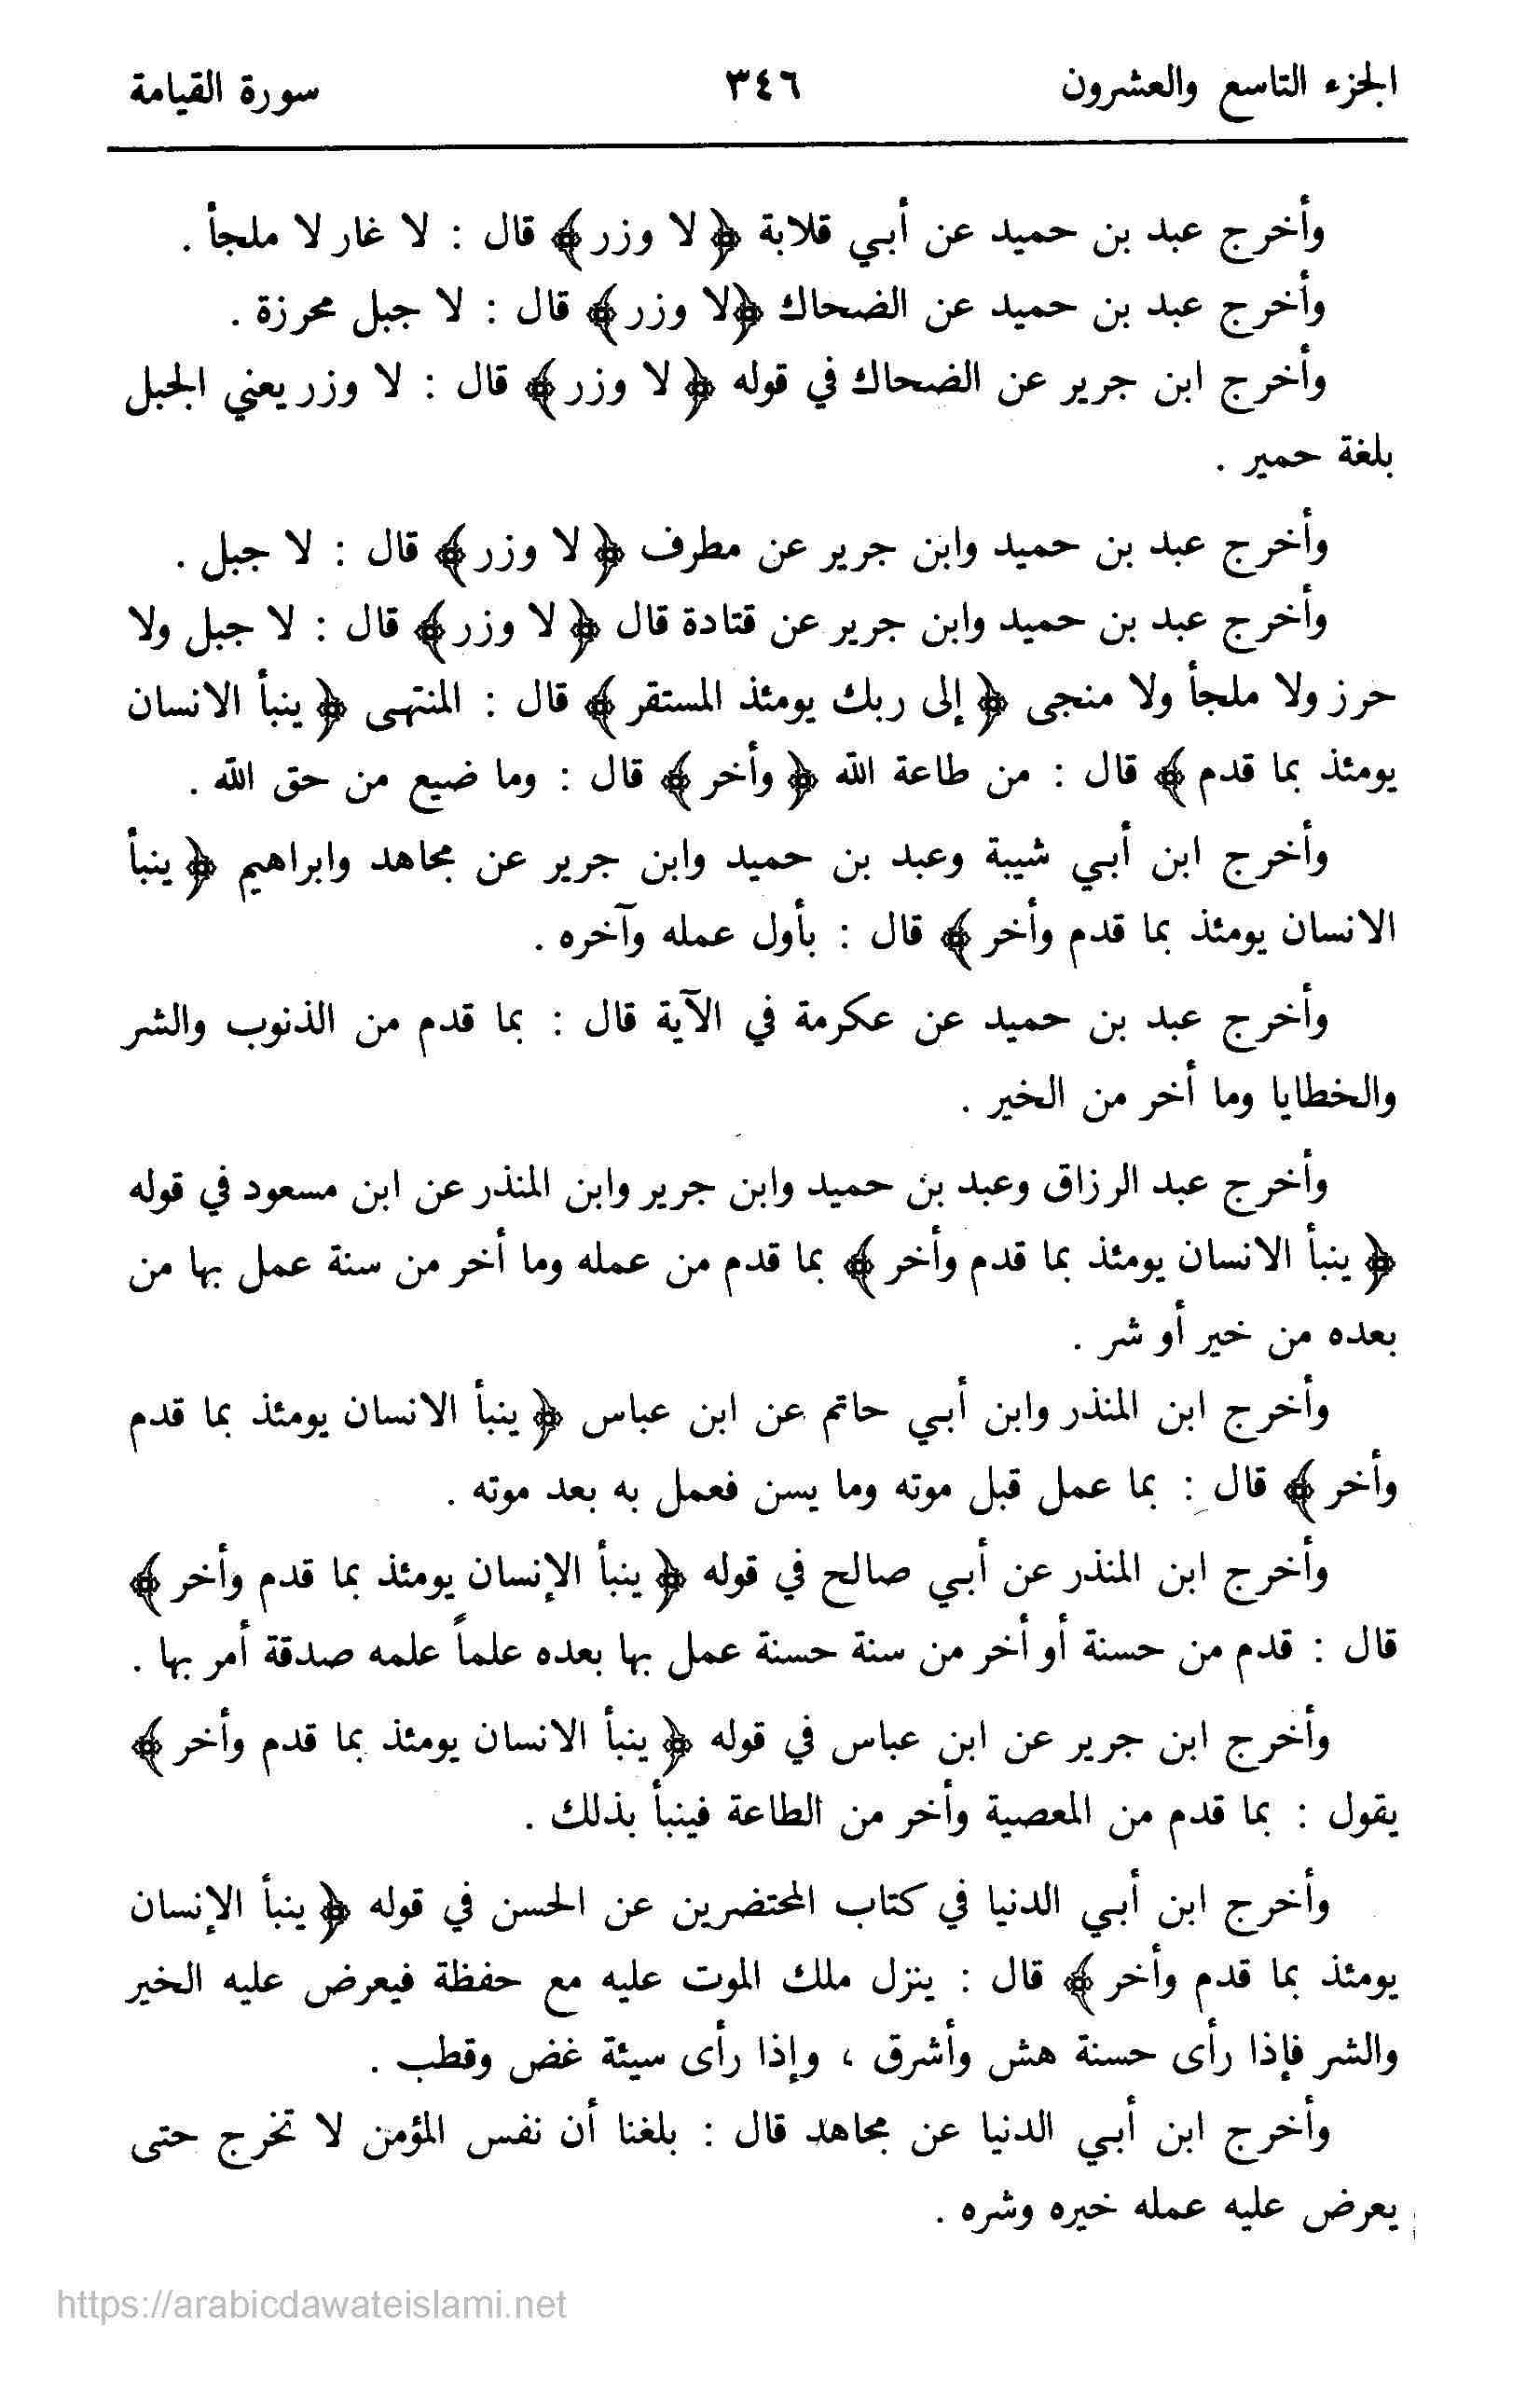 الجزء التاسع والعشرون ٣٤٦ سورة القيامة
وأخرج عبد بن حميد عن أبي قلابة ﴿ لا وزر ﴾ قال : لا غار لا ملجأ .
وأخرج عبد بن حميد عن الضحاك ﴿لا وزر ﴾ قال : لا جبل محرزة .
وأخرج ابن جرير عن الضحاك في قوله ﴿ لا وزر ﴾ قال : لا وزر يعني الجبل
بلغة حمير .
وأخرج عبد بن حميد وابن جرير عن مطرف ﴿ لا وزر ﴾ قال : لا جبل .
وأخرج عبد بن حميد وابن جرير عن قتادة قال ﴿ لا وزر ﴾ قال : لا جبل ولا
حرز ولا ملجأ ولا منجى ﴿ إلى ربك يومئذ المستقر ﴾ قال : المنتهى ﴿ ينبأ الانسان
يومئذ بما قدم ﴾ قال : من طاعة الله ﴿ وأخر ﴾ قال : وما ضيع من حق الله .
وأخرج ابن أبي شيبة وعبد بن حميد وابن جرير عن مجاهد وابراهيم ﴿ ينبأ
الانسان يومئذ بما قدم وأخر ﴾ قال : بأول عمله وآخره .
وأخرج عبد بن حميد عن عكرمة في الآية قال : بما قدم من الذنوب والشر
والخطايا وما أخر من الخير .
وأخرج عبد الرزاق وعبد بن حميد وابن جرير وابن المنذر عن ابن مسعود في قوله
﴿ ينبأ الانسان يومئذ بما قدم وأخر ﴾ بما قدم من عمله وما أخر من سنة عمل بها من
بعده من خير أو شر .
وأخرج ابن المنذر وابن أبي حاتم عن ابن عباس ﴿ ينبأ الانسان يومئذ بما قدم
وأخر ﴾ قال : بما عمل قبل موته وما يسن فعمل به بعد موته .
وأخرج ابن المنذر عن أبي صالح في قوله ﴿ ينبأ الإنسان يومئذ بما قدم وأخر ﴾
قال : قدم من حسنة أو أخر من سنة حسنة عمل بها بعده علماً علمه صدقة أمر بها .
وأخرج ابن جرير عن ابن عباس في قوله ﴿ ينبأ الانسان يومئذ بما قدم وأخر ﴾
يقول : بما قدم من المعصية وأخر من الطاعة فينبأ بذلك .
وأخرج ابن أبي الدنيا في كتاب المحتضرين عن الحسن في قوله ﴿ ينبأ الإنسان
يومئذ بما قدم وأخر ﴾ قال : ينزل ملك الموت عليه مع حفظة فيعرض عليه الخير
والشر فإذا رأى حسنة هش وأشرق ، وإذا رأى سيئة غض وقطب .
وأخرج ابن أبي الدنيا عن مجاهد قال : بلغنا أن نفس المؤمن لا تخرج حتى
يعرض عليه عمله خيره وشره .
https://arabicdawateislami.net